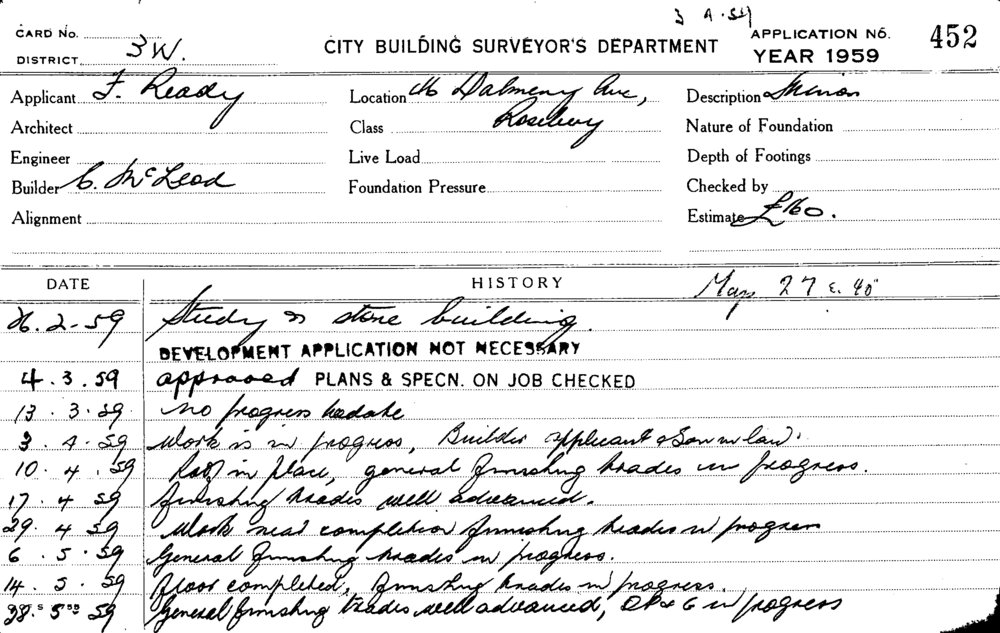 3 4.59
CARD No. CITY BUILDING SURVEYOR'S DEPARTMENT APPLICATION No. 452
DISTRICT 3W. YEAR 1959
Applicant F. Ready Location 16 Dalmeny Ave, Description Minor
Architect Class Rosebery Nature of Foundation
Engineer Live Load Depth of Footings
Builder C. McLeod Foundation Pressure Checked by
Alignment Estimate £160.
DATE HISTORY May 27 E. 40
26.2-59 Study & store building.
DEVELOPMENT APPLICATION NOT NECESSARY
4.3.59 approved PLANS & SPECN. ON JOB CHECKED
13.3.59 no progress to date
3.4.59 Work is in progress, Builder applicant & Son in law.
10.4.59 Roof in place, general finishing trades in progress.
17.4.59 finishing trades well advanced.
29.4.59 Work near completion finishing trades in progress
6.5.59 General finishing trades in progress.
14.5.59 floor completed, finishing trades in progress.
28.5.59 General finishing trades well advanced, in progress